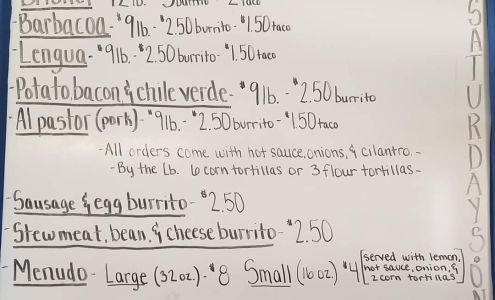 -Barbacoa- $9lb.- $2.50 burrito- $1.50 taco
-Lengua- $9lb.- $2.50 burrito- $1.50 taco
-Potato, bacon, & chile verde- $9lb.- $2.50 burrito
-Al pastor (pork)- $9lb.- $2.50 burrito- $1.50 taco
-All orders come with hot sauce, onions, & cilantro.-
-By the Lb. 6 corn tortillas or 3 flour tortillas-
-Sausage & egg burrito- $2.50
-Stew meat, bean, & cheese burrito- $2.50
-Menudo- Large (32oz.)- $8 Small (16oz.) $4 [served with lemon, hot sauce, onion, & 2 corn tortillas]
SATURDAYS:ON